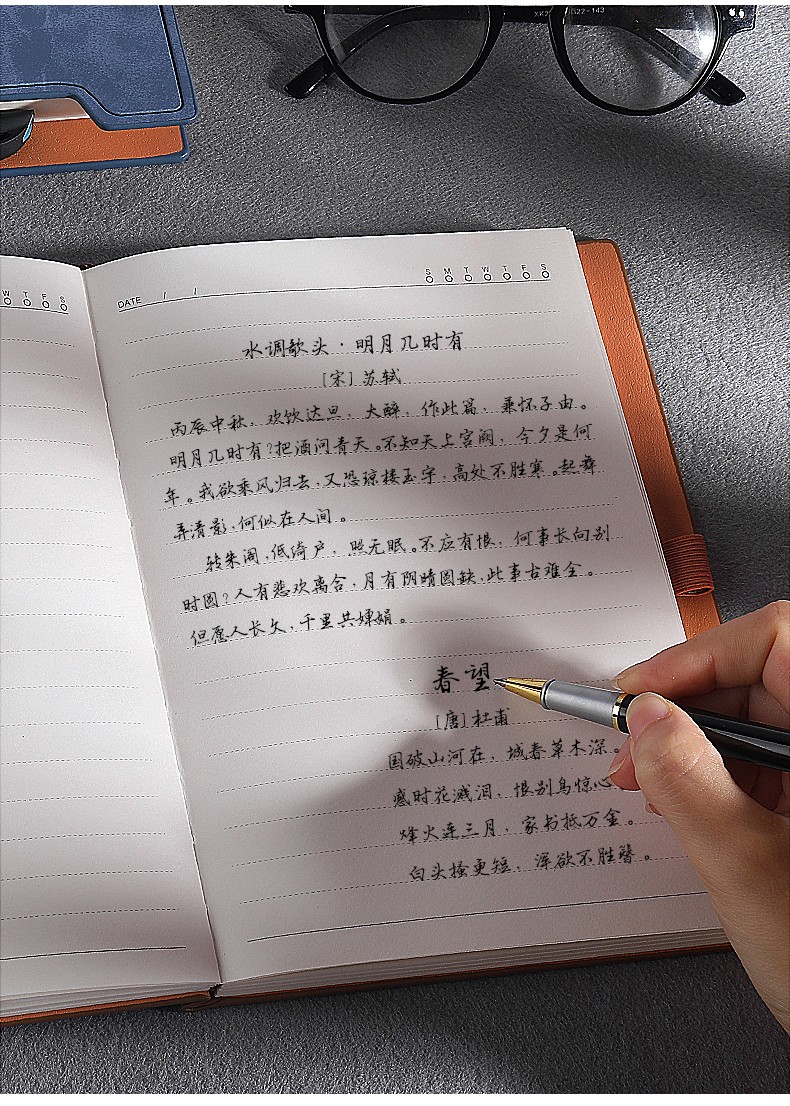 XK2 522-143
W T F S
DATE / /
S M T W T F S
水调歌头·明月几时有
[宋]苏轼
丙辰中秋，欢饮达旦，大醉，作此篇，兼怀子由。
明月几时有？把酒问青天。不知天上宫阙，今夕是何
年。我欲乘风归去，又恐琼楼玉宇，高处不胜寒。起舞
弄清影，何似在人间。
转朱阁，低绮户，照无眠。不应有恨，何事长向别
时圆？人有悲欢离合，月有阴晴圆缺，此事古难全。
但愿人长久，千里共婵娟。
春望
[唐]杜甫
国破山河在，城春草木深。
感时花溅泪，恨别鸟惊心
烽火连三月，家书抵万金。
白头搔更短，浑欲不胜簪。